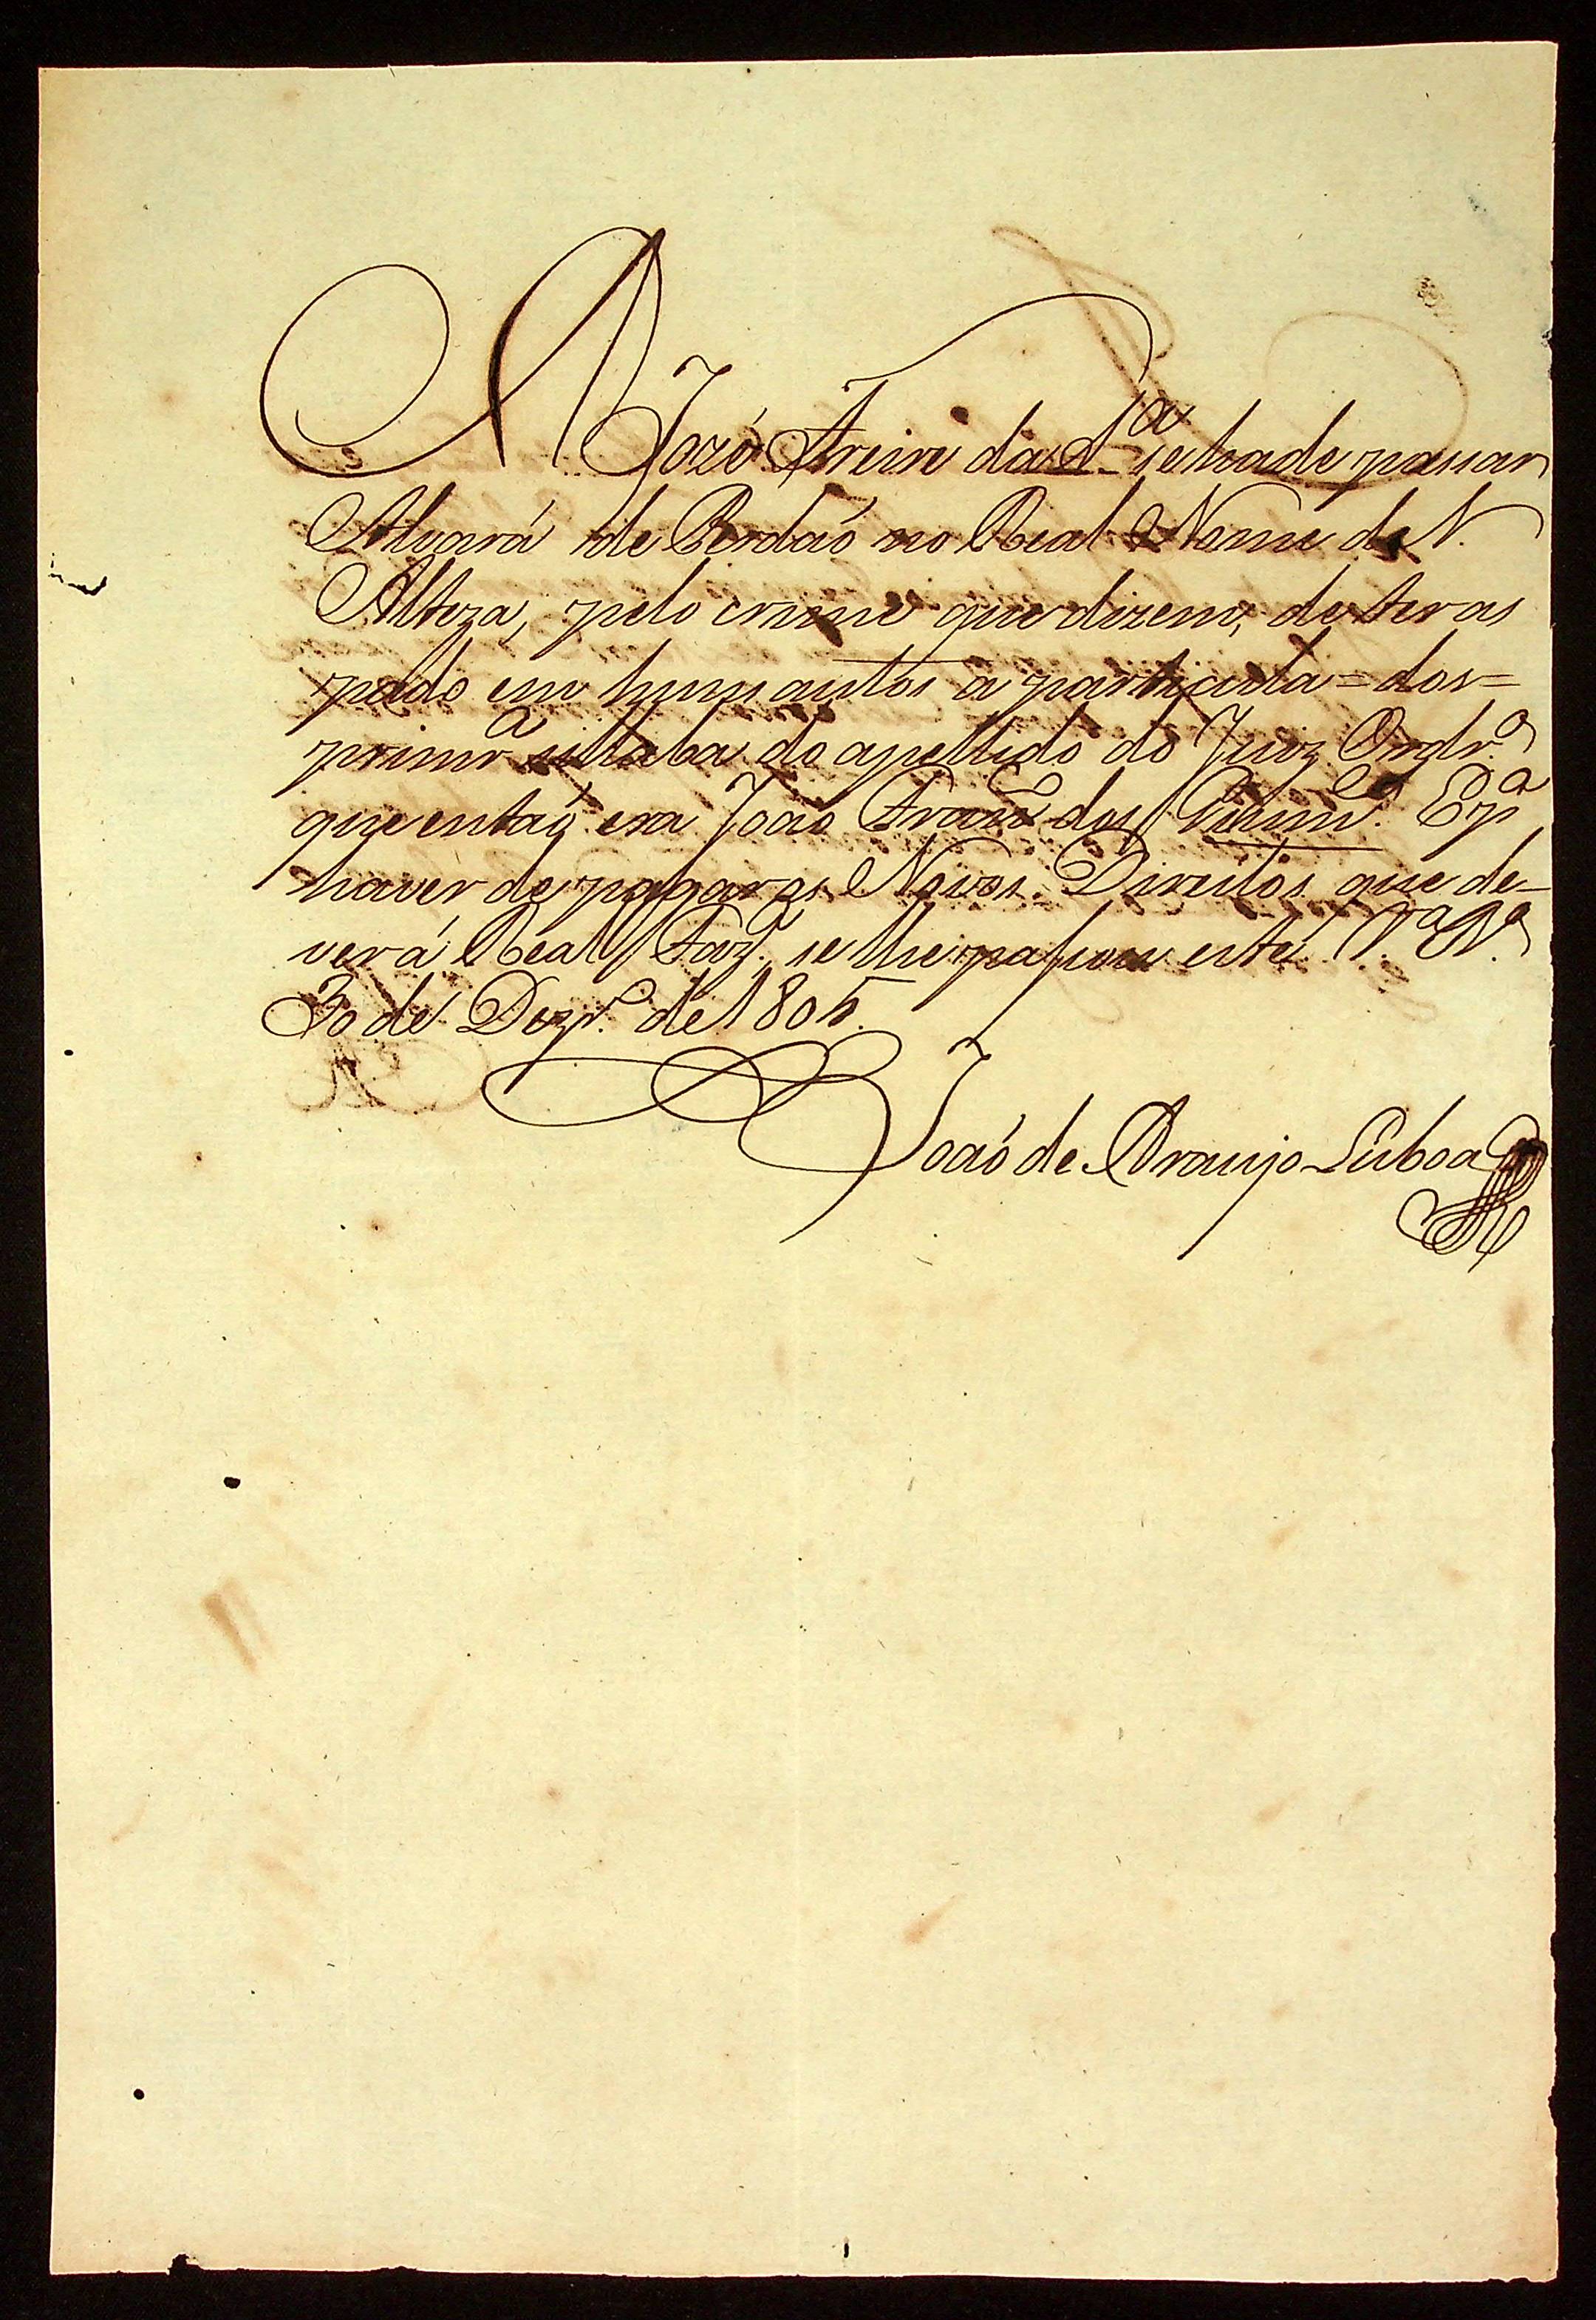 A Jozé Freire da S.ª se hade passar
Alvará de Perdaó no Real Nome de V.
Alteza, pelo crime que dizem, de ter as
pado em huns autos a particula = dos =
primr.ª sillaba do apellido do Juiz Ordr.º
que entaó era Joaó Fran.co dos E p.ª
haver de pagar os Novos Direitos que de-
verá Real Faz.ª, se lhe passou este. V.ª N.ª
30 de Dezr.º de 1805.
Joaó de Araujo Lisboa